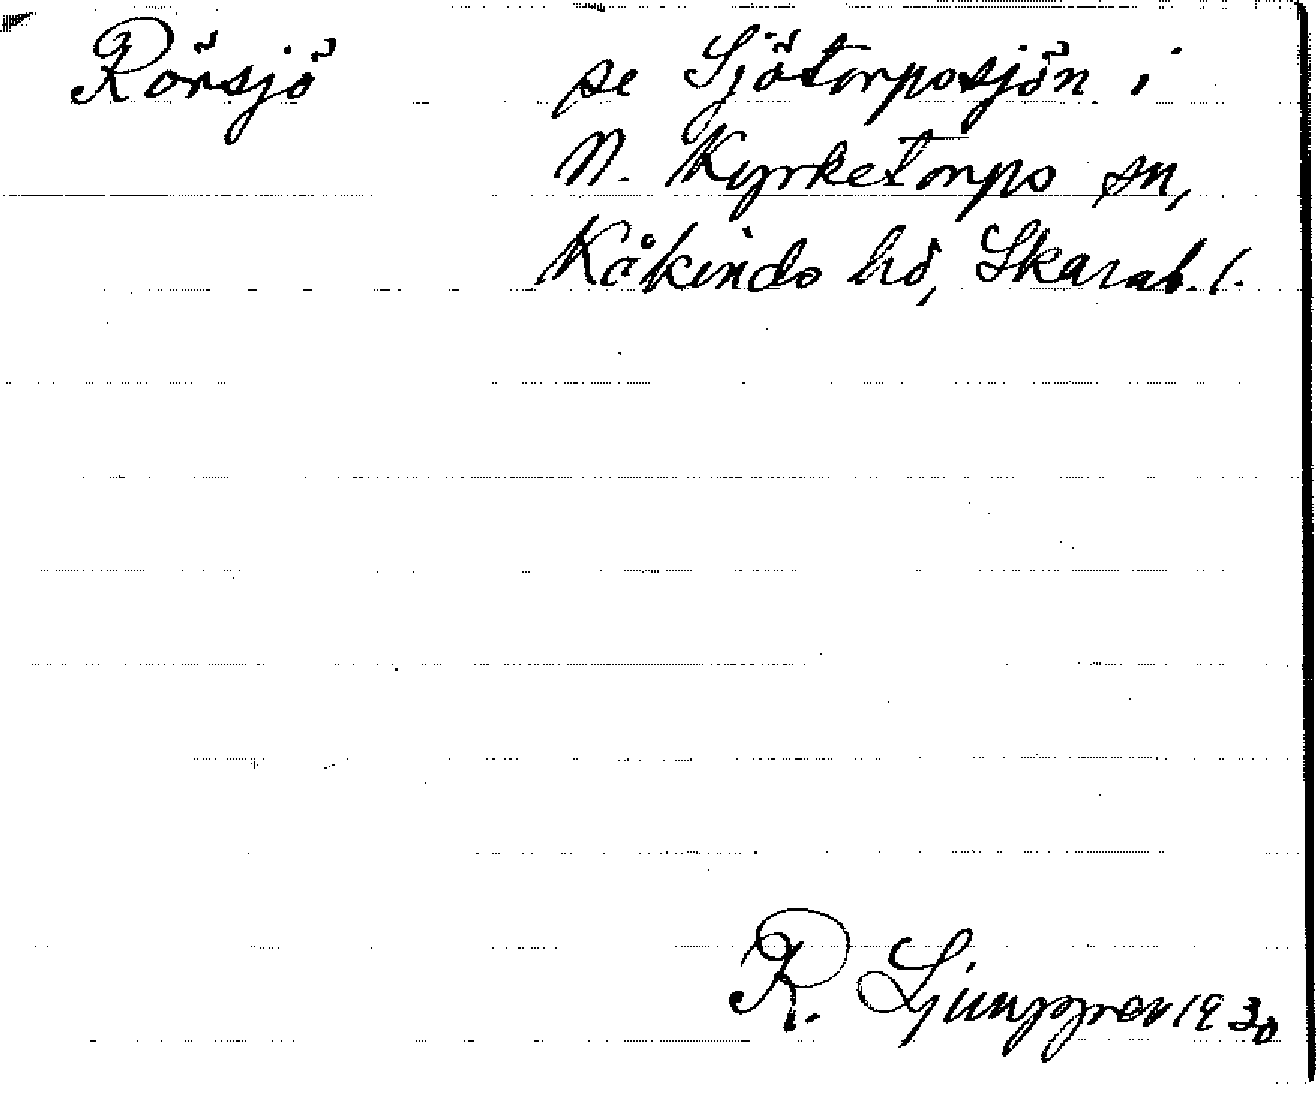 Rörsjö se Sjötorpssjön i
N. Kyrketorps sn,
Kåkinds hd, Skarab. l.
R. Ljunggren 1930